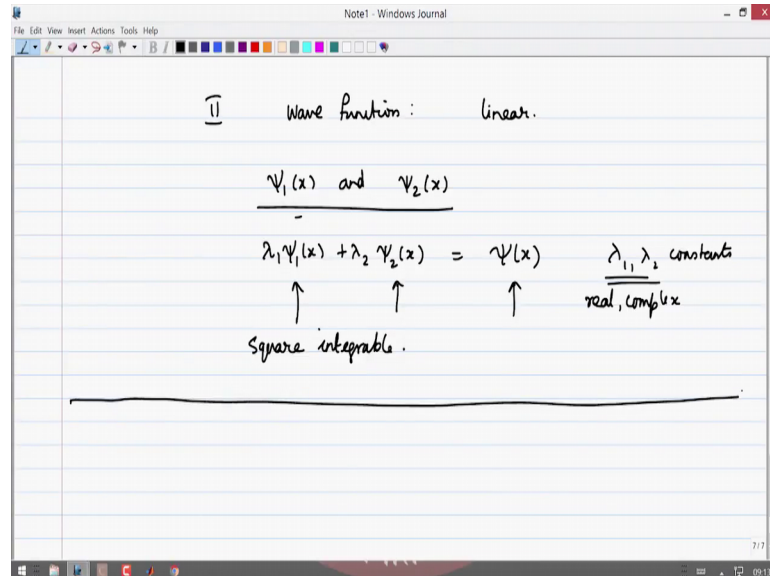 Note1 - Windows Journal
File Edit View Insert Actions Tools Help
B I
II wave function : linear.
Ψ₁(x) and Ψ₂(x)
λ₁Ψ₁(x) + λ₂ Ψ₂(x) = Ψ(x) λ₁, λ₂ constants
real, complex
square integrable.
7/7
09:17